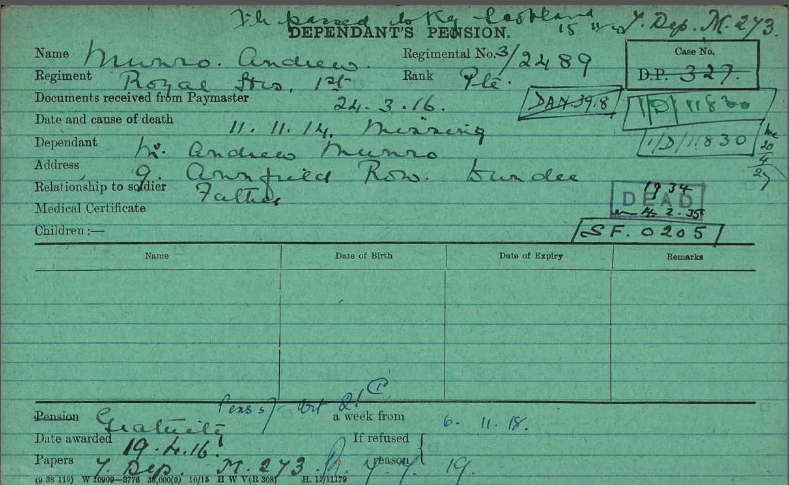 passed to Kg Scotland 15 Y. Dep. M. 273.
DEPENDANT'S PENSION.
Name Munro. Andrew. Regimental No. 3/2489 Case No.
Regiment Royal Hrs, 1st Rank Pte. D.P. 327.
Documents received from Paymaster 24.3.16. 1/D/11830
Date and cause of death 11.11.14, Missing 1/D/11830
Dependant Mr. Andrew Munro
Address 9. Annfield Row. Dundee
Relationship to soldier Father 1934 DEAD
Medical Certificate 2.35
Children :— SF. 0205
Name Date of Birth Date of Expiry Remarks
Pension Gratuity a week from 6.11.18.
Date awarded 19.4.16. If refused
Papers Y. Dep. M. 273 reason 19.
(9 38 110) W 10909—3776 10/15 H W V(R 308) H. 15/11179